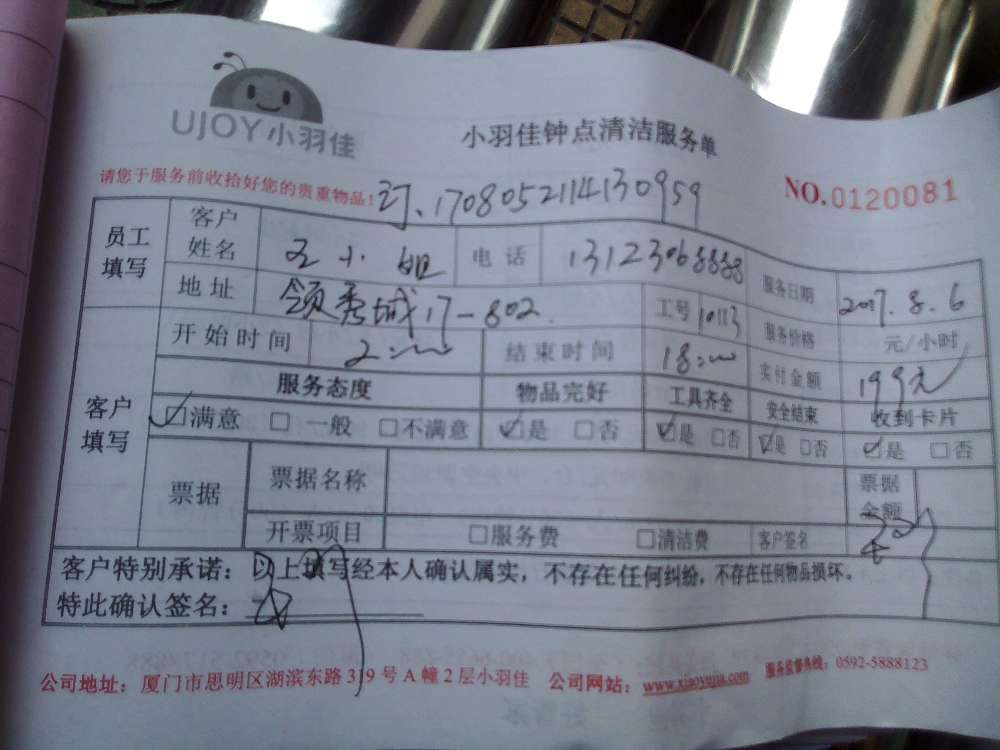 UJOY小羽佳
小羽佳钟点清洁服务单
请您于服务前收拾好您的贵重物品! 订、1708052114130959
NO.0120081
员工填写 客户姓名 王小姐 电话 13123068888 服务日期 2017.8.6
地址 领秀城17-802 工号 10113 服务价格 元/小时
客户填写 开始时间 2:00 结束时间 18:00 实付金额 199元
服务态度 物品完好 工具齐全 安全结束 收到卡片
☑满意 □一般 □不满意 ☑是 □否 ☑是 □否 ☑是 □否 ☑是 □否
票据 票据名称 票据金额
开票项目 □服务费 □清洁费 客户签名
客户特别承诺：以上填写经本人确认属实，不存在任何纠纷，不存在任何物品损坏。
特此确认签名：
公司地址：厦门市思明区湖滨东路319号A幢2层小羽佳 公司网站：www.xiaoyujia.com 服务监督热线：0592-5888123